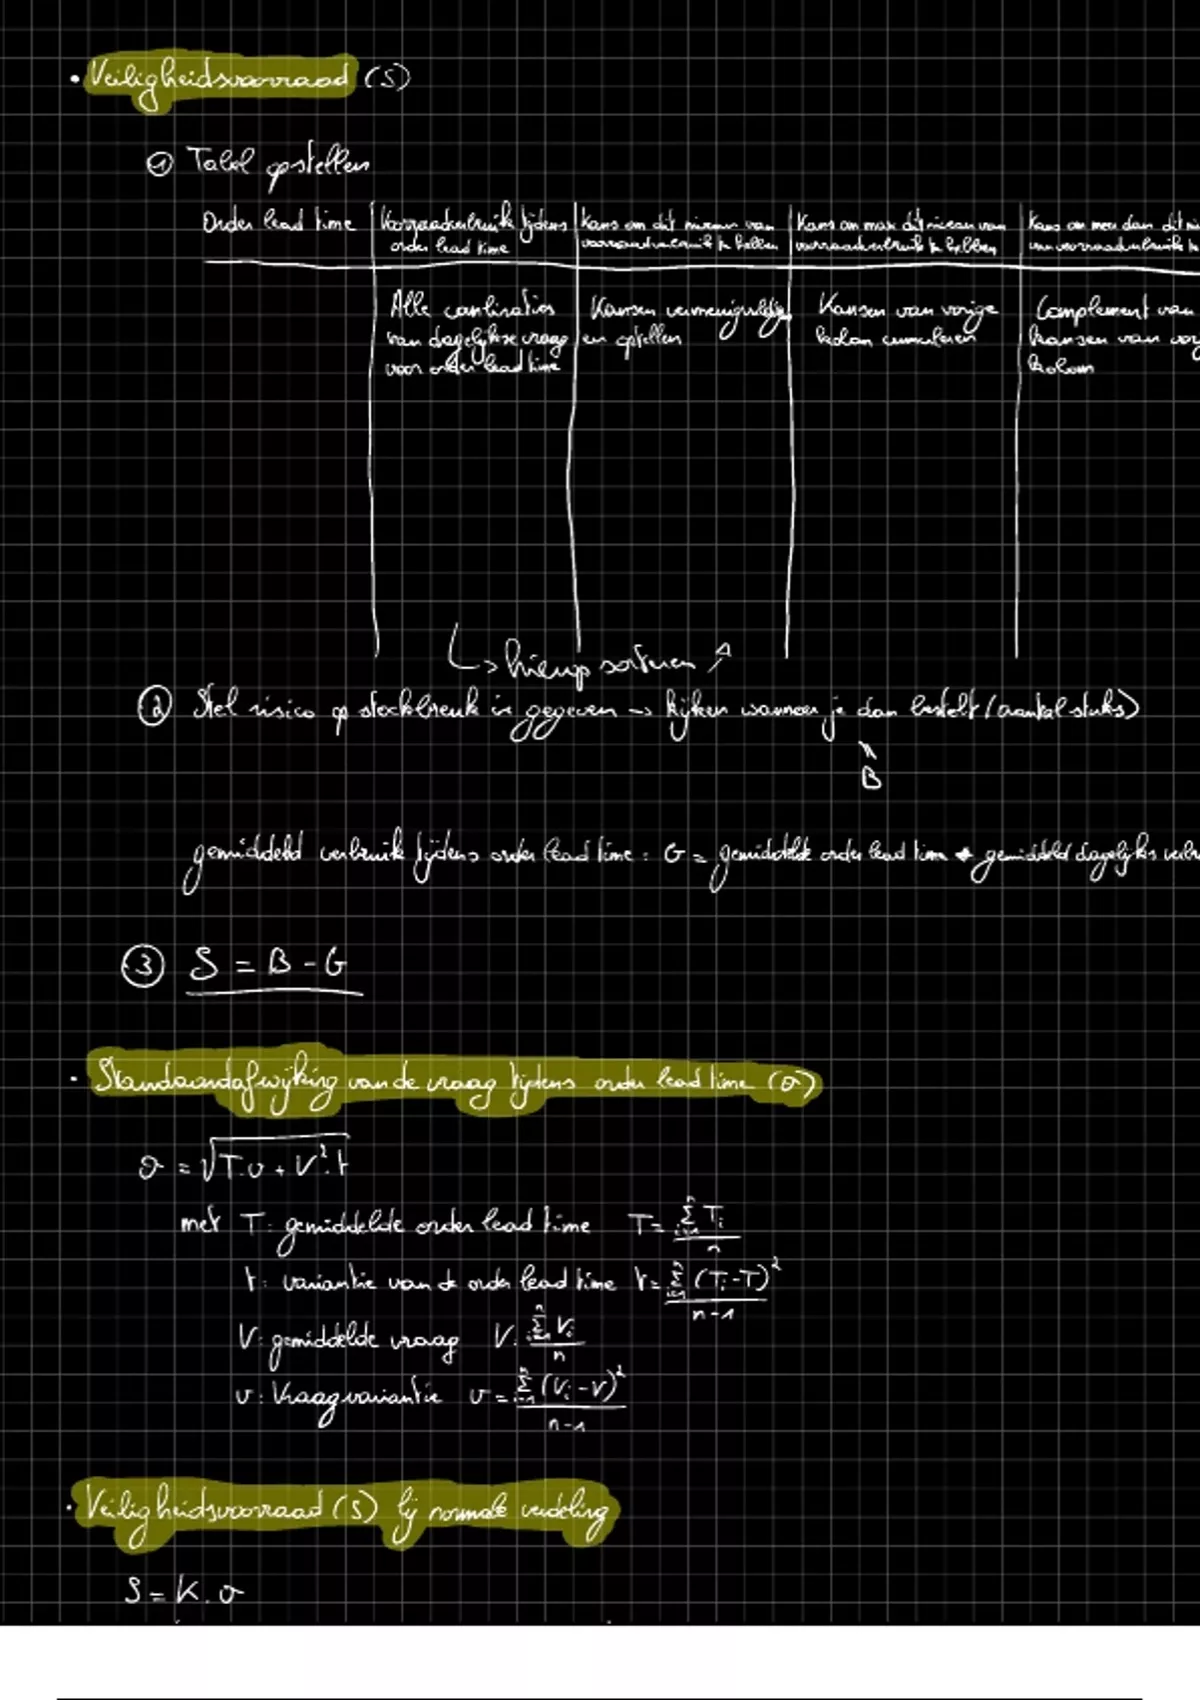 • Veiligheidsvoorraad (S)
① Tabel opstellen
Order lead time | Voorraadverbruik tijdens | Kans om dit niveau van | Kans om max dit niveau van | Kans om meer dan dit ni
order lead time | voorraadverbruik te hebben | voorraadverbruik te hebben | van voorraadverbruik te
Alle combinaties | Kansen vermenigvuldigen | Kansen van vorige | Complement van
van dagelijkse vraag | en optellen | kolom cumuleren | kansen van vorig
voor order lead time | kolom
↳ hierop sorteren ↗
② Stel risico op stockbreuk is gegeven → kijken wanneer je dan bestelt (aantal stuks)
B
gemiddeld verbruik tijdens order lead time: G = gemiddelde order lead time * gemiddeld dagelijks verbr
③ S = B - G
• Standaardafwijking van de vraag tijdens order lead time (σ)
σ = √(T.v + V².t)
met T: gemiddelde order lead time T = Σⁿᵢ₌₁ Tᵢ / n
t: variantie van de order lead time t = Σⁿᵢ₌₁ (Tᵢ - T)² / n-1
V: gemiddelde vraag V: Σⁿᵢ₌₁ Vᵢ / n
v: Vraagvariantie v = Σⁿᵢ₌₁ (Vᵢ - V)² / n-1
• Veiligheidsvoorraad (S) bij normale verdeling
S = K.σ